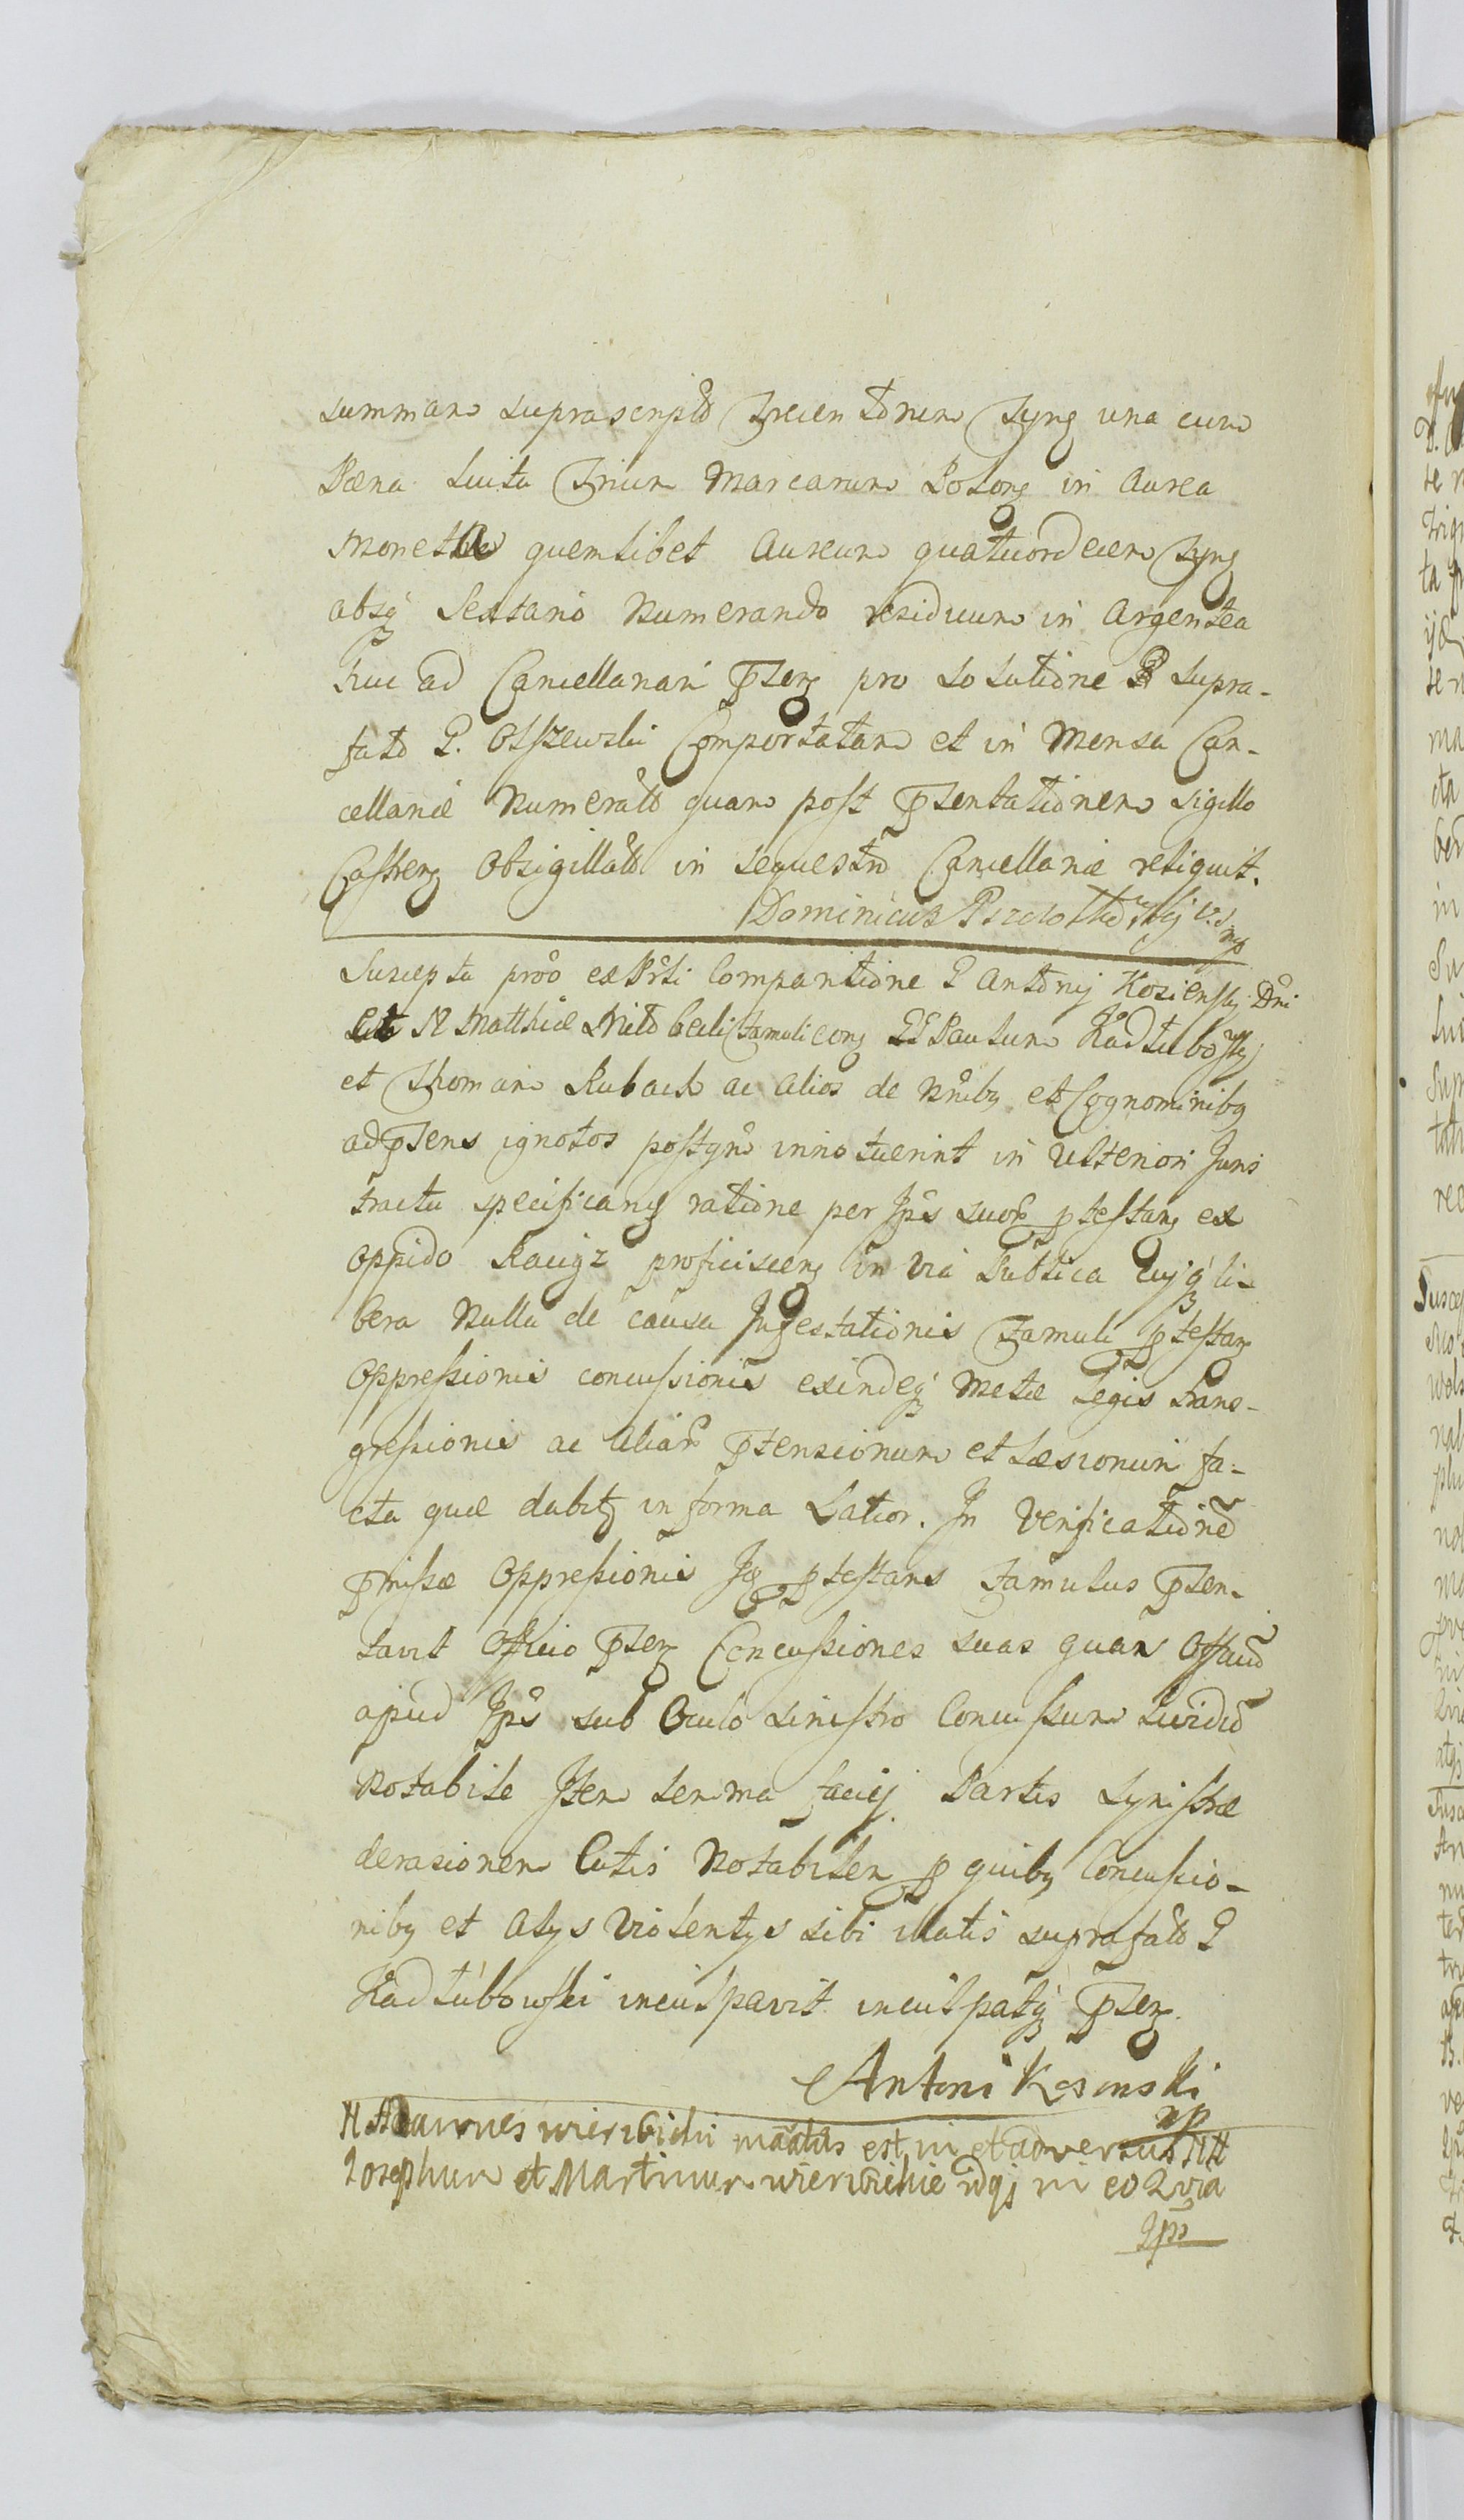 summam suprascriptã Trecentorum Tymg una cum
Pæna Luita Trium Marcarum Polong in Aurea
Moneta quemlibet Aureum quatuordecem Tymg
absq Sextario Numerando residuum in Argentea
huc ad Cancellariam Pseng pro solutione P supra-
fato P. Olszewski Comportatam et in Mensa Can-
cellariæ Numeratã quam post Psentationem sigillo
Castreng Obsigillatã in sequestro Cancellariæ reliquit.
Dominicus
Suscepta protõ ex Prti Comparitione P Antonij Kosiensky Dni
et N Matthiæ famuli cong PP Paulum Kadlubowsky
et Thomam Rubach ac alios de Nnibq et Cognominibq
ad psens ignotos postqm innotuerint in Ulteriori Juris
tractu specificang ratione per Ips suor ptestang ex
oppido Raciąz proficisceng in via Publica cujqs li-
bera Nulla de causa Infestationis Famuli ptestang
Oppressionis concussionis exindeq Metæ Legis trans-
gressionis ac aliar Ptensionum et Læsionum fa-
cta quæ dabitq in forma Latior. In Verificationẽ
Pmissæ Oppressionis Iq ptestans Famulus Psen-
tavit Officio Pseng Concussiones suas quar Offaũ
apud Ips sub Oculo sinistro Concussum lividũ
Notabile Item in ma faciej Partis Synistræ
derasionem Cutis Notabilem p quibq Concussio-
nibq et alys Violentys sibi illatis suprafatõ P
Kadłubowski inculpavit inculpatq Pseng.
Antoni Kosinski
mp
N Adamus wierzbicki mãntus est in et adversus NN
Iosephum et Martinum wierzbickie ndqs in eo Qvia
Ips